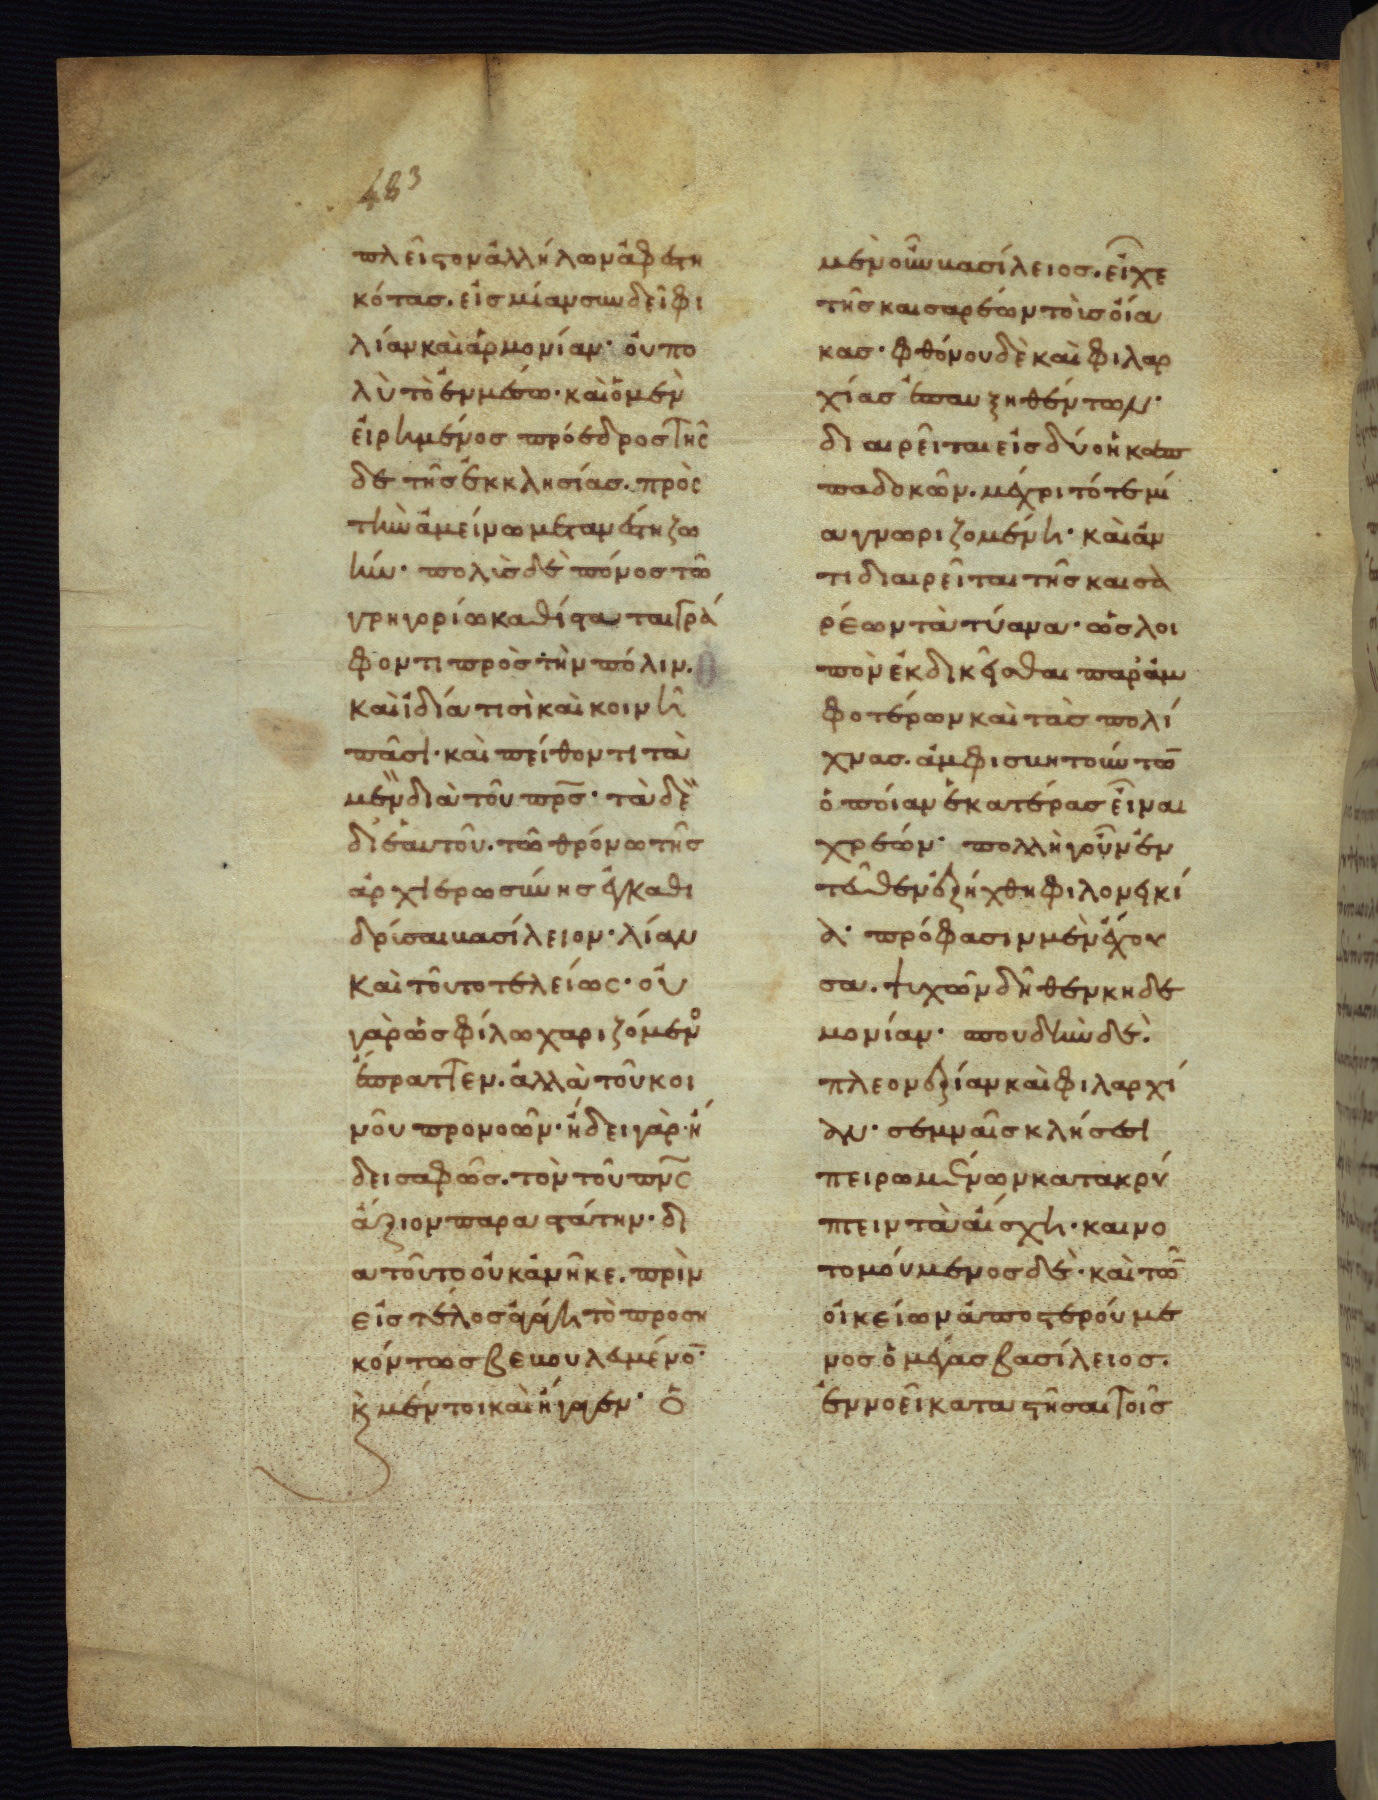 483
πλεῖστον ἀλλήλων ἀφεστη
κότας. εἰς μίαν συνδεῖ φι
λίαν καὶ ἁρμονίαν· οὐ πο
λὺ τὸ ἐν μέσω· καὶ ὁ μὲν
εἰρημένος πρόεδρος τῆσ
δε τῆς ἐκκλησίας. πρὸς
τὴν ἀμείνω μετανέστη ζω
ήν· πολὺς δὲ πόνος τῶ
γρηγορίω καθίσταται γρά
φοντι πρὸς τὴν πόλιν.
καὶ ἰδία τισὶ καὶ κοινῆ
πᾶσι· καὶ πείθοντι τὰ
μὲν διὰ τοῦ πρς· τὰ δὲ
δι' ἑαυτοῦ. τῶ θρόνω τῆς
ἀρχιερωσύνης ἐγκαθι
δρῦσαι βασίλειον· λίαν
καὶ τοῦτο τελείως· οὐ
γὰρ ὡς φίλω χαριζόμενο
ἔπραττεν. ἀλλὰ τοῦ κοι
νοῦ προνοῶν· ἤδει γὰρ· ἤ
δει σαφῶς. τὸν τοῦ πνς
ἄξιον παραστάτην· δι
ατοῦτο οὐκ ἀνῆκε. πρὶν
εἰς τέλος ἀγάγη τὸ προση
κόντως βεβουλευμένο·
κ μέντοι καὶ ἤγαγεν· ὁ
μὲν οὖν βασίλειος. εἶχε
τῆς καισαρέων τοὺς οἴα
κας· φθόνου δὲ καὶ φιλαρ
χίας ἐπαυξηθέντων·
διαιρεῖται εἰς δύο ἡ καπ
παδοκῶν. μέχρι τότε μί
α γνωριζομένη· καὶ ἀν
τιδιαιρεῖται τῆς καισα
ρέων τὰ τύανα· ὡς λοι
πὸν ἐκδικεῖσθαι παρ' ἀμ
φοτέρων καὶ τὰς πολί
χνας. ἀμφισβητούντων
ὁποίαν ἑκατέρας εἶναι
χρεών· πολλὴ γοῦν ἐν
τεῦθεν ἐξήχθη φιλονεικί
α· πρόφασιν μὲν ἔχου
σα. ψυχῶν δῆθεν κηδε
μονίαν· σπουδὴν δὲ.
πλεονεξίαν καὶ φιλαρχί
αν· σεμναῖς κλήσεσι
πειρωμένων κατακρύ
πτειν τὰ αἴσχη· καινο
τομούμενος δὲ· καὶ τῶν
οἰκείων ἀποστερούμε
νος ὁ μέγας βασίλειος.
ἐννοεῖ καταστῆσαι τοῖς